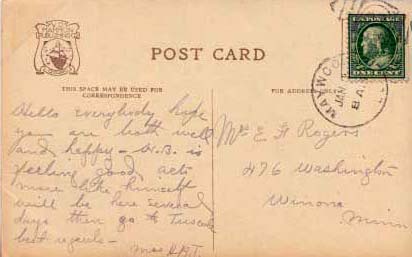 POST CARD
THIS SPACE MAY BE USED FOR
CORRESPONDENCE
FOR ADDRESS ONLY
U.S. POSTAGE
ONE CENT
MAYWOOD
JAN
8 AM
Hello everybody hope
you are both well
and happy - W.B. is
feeling good, acts
more like himself
will be here several
days then go to
best regards -
Mrs
Mrs E H Rogers
476 Washington
Winona
Minn